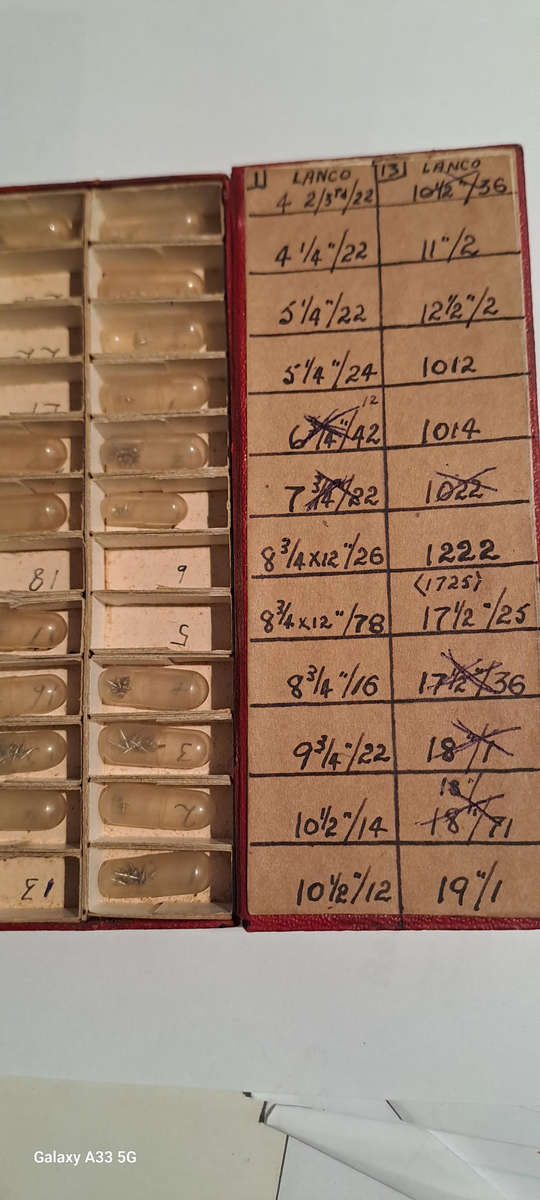 1 LANCO
4 2/3rd/22
4 1/4"/22
5 1/4"/22
5 1/4"/24
12
6 3/4"/42
7 3/4"/22
8 3/4x12"/26
8 3/4x12"/78
8 3/4"/16
9 3/4"/22
10 1/2"/14
10 1/2"/12
13 LANCO
10 1/2"/36
11"/2
12 1/2"/2
1012
1014
1022
1222
(1725)
17 1/2"/25
17 1/2"/36
18"/1
18"/
18"/71
19"/1
6
5
4
3
2
18
17
16
13
Galaxy A33 5G